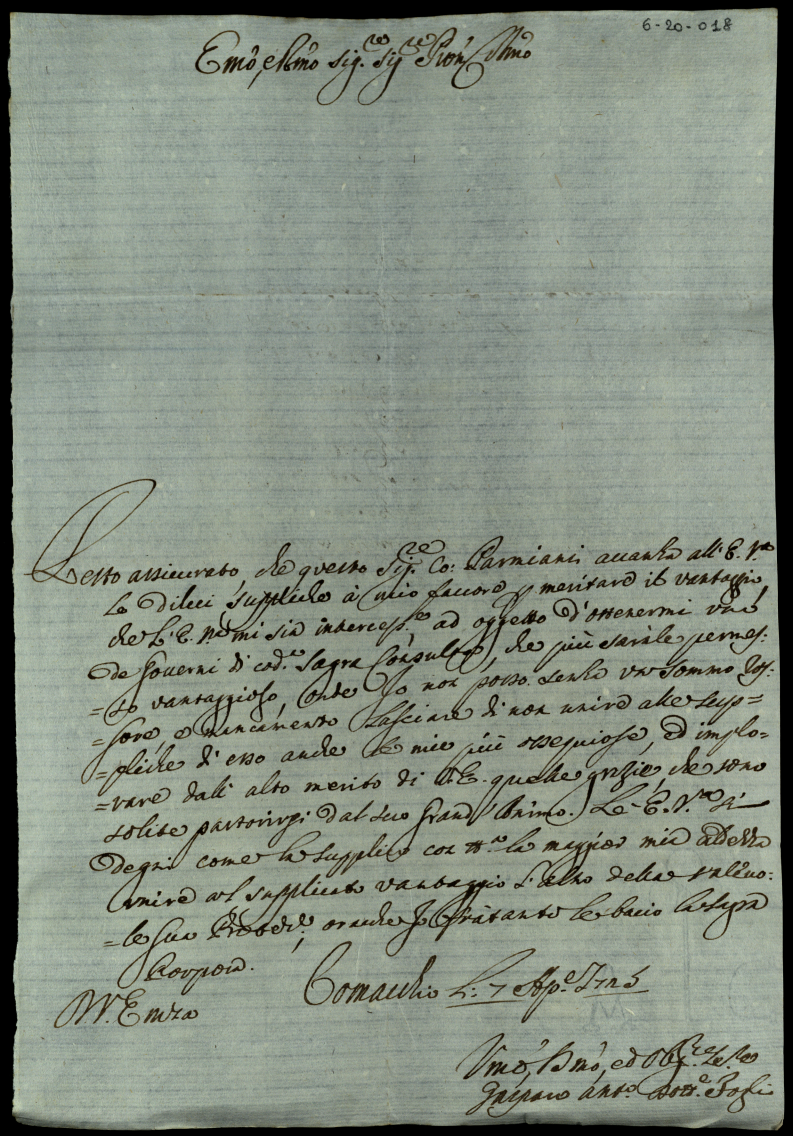 6-20-018
Emo, e Rmo Sig.re Sig.re Pron Colmo
Resto assicurato, che questo Sig.re Co: Parmiani auanza all' E. Vra
le dilei suppliche à mio fauore, meritare il vantaggio,
che l'E. V. mi sia intercess.e ad oggetto d'ottenermi uno
de Gouerni di cod.a Sagra Consulta, che più sarale permes:
=so vantaggioso, onde Io non posso senza un sommo ros=
=sore, e mancamento lasciare di non unire alle sup=
=pliche di esso anche le mie più ossequiose, ed implo=
=rare dall' alto merito di V.E. quelle grazie, che sono
solite partorirsi dal suo Grand' Animo. L'E. Vra si
degni come la supplico con la maggior mia
unire al supplicato vantaggio l'alto della valeuo:
=le sua Protez.e, anche Io frà tanto le bacio la Sagra
Porpora.
D. V. Emza
Comacchio Li: 7 Ap.e
Umo, Dmo, ed Obb.
Gaspare Ant.o Dott.e Fogli